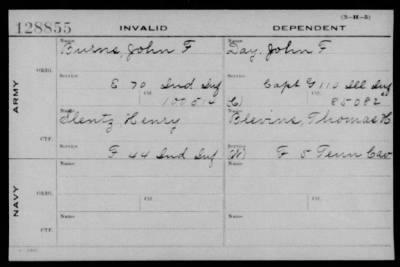 (3-H-5)
128855 INVALID DEPENDENT
Name Name
Burns, John F Day, John F
ORIG. Service Service
E 70 Ind Inf Capt G 110 Ill Inf
Ctf. Ctf.
C) 85082
ARMY
Name Name
Henry Blevins, Thomas H
CTF. Service Service
F 44 Ind Inf (W) F 5 Tenn Cav
Name Name
ORIG. Service Ctf. Service Ctf.
NAVY
Name Name
CTF. Service Service